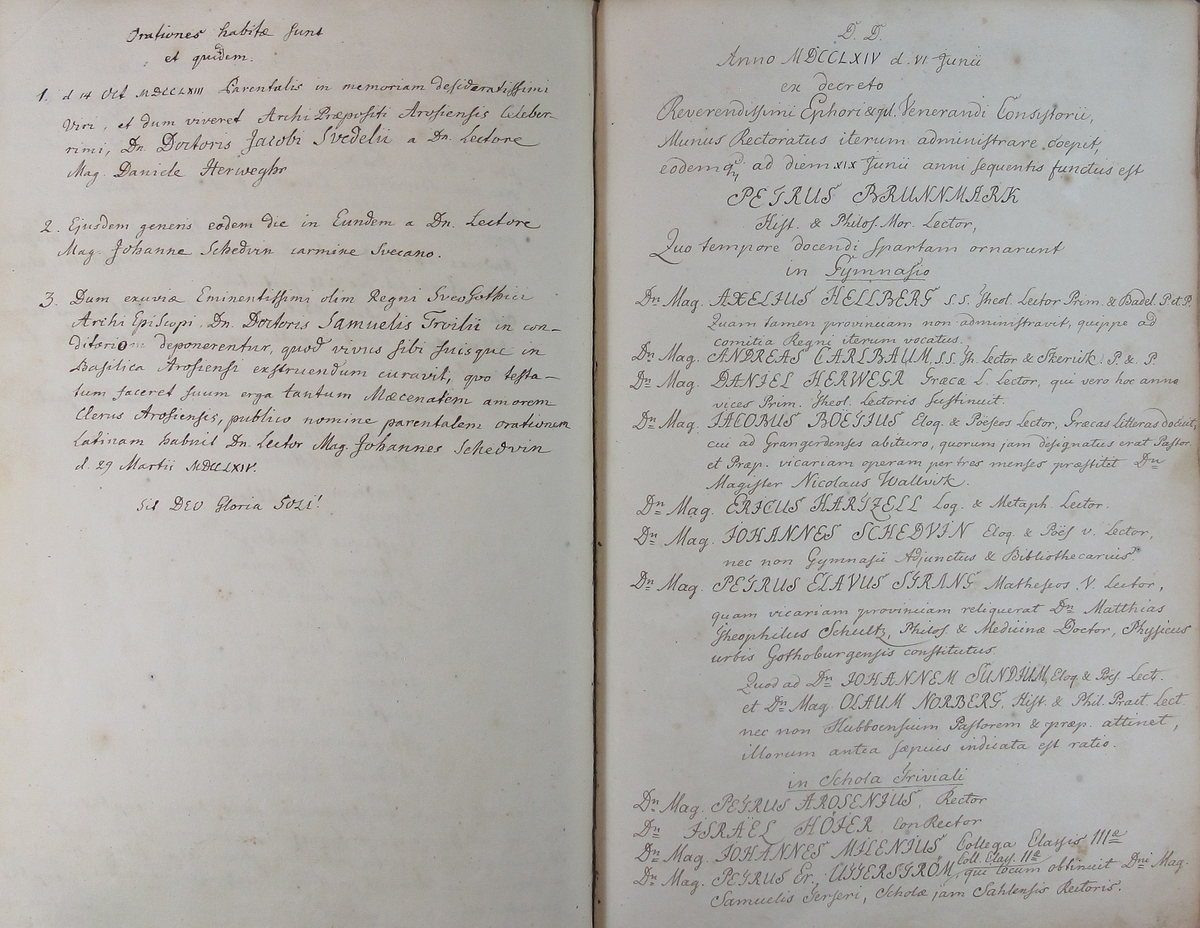 Orationes habitæ sunt
et quidem.
1. d 14 Oct MDCCLXIII Parentalis in memoriam desideratissimi
Viri, et dum viveret Archi Præpositi Arosiensis Celeber-
rimi, Dn. Doctoris Jacobi Svedelii a Dn. Lectore
Mag. Daniele Herweghr
2. Ejusdem generis eodem die in Eundem a Dn. Lectore
Mag. Johanne Schedvin carmine Svecano.
3. Dum exuviæ Eminentissimi olim Regni SveoGothici
Archi Episcopi Dn. Doctoris Samuelis Troilii in con-
ditorio deponerentur, quod vivus sibi suisque in
Basilica Arosiensi exstruendum curavit, quo testa-
tum faceret suum erga tantum Mæcenatem amorem
Clerus Arosiensis, publico nomine parentalem orationem
Latinam habuit Dn. Lector Mag. Johannes Schedvin
d. 29 Martii MDCCLXIV.
Sit DEO Gloria SOLI!
D. D.
Anno MDCCLXIV d. VI Junii
ex decreto
Reverendissimi Ephori &qul. Venerandi Consistorii,
Munus Rectoratus iterum administrare coepit,
eodemq; ad diem XIX Junii anni sequentis functus est
PETRUS BRUNNMARK
Hist. & Philos. Mor. Lector,
Quo tempore docendi spartam ornarunt
in Gymnasio
Dn Mag. AXELIUS HELLBERG S.S. Theol. Lector Prim. & Badel. P et P.
Quam tamen provinciam non administravit, quippe ad
comitia Regni iterum vocatus.
Dn Mag. ANDREAS CARLBAUM, S.S. Th. Lector & Skerivik. P. & P.
Dn Mag. DANIEL HERWEGR Græcæ L. Lector, qui vero hoc anno
vices Prim. Theol. Lectoris sustinuit.
Dn Mag. JACOBUS BOETIUS Eloq. & Poëseos Lector, Græcas Litteras docuit,
cui ad Grangerdenses abituro, quorum jam designatus erat Pastor
et Præp. vicariam operam per tres menses præstitit Dn
Magister Nicolaus Wallvik.
Dn Mag. ERICUS HARTZELL Log. & Metaph. Lector.
Dn Mag. JOHANNES SCHEDVIN Eloq. & Poës v. Lector,
nec non Gymnasii Adjunctus & Bibliothecarius.
Dn Mag. PETRUS ELAVUS STRANG Matheseos V. Lector,
quam vicariam provinciam reliquerat Dn Matthias
Theophilus Schultz, Philos. & Medicinæ Doctor, Physicus
urbis Gothoburgensis constitutus.
Quod ad Dn JOHANNEM SUNDIUM, Eloq & Poës Lect.
et Dn Mag. OLAUM NORBERG, Hist. & Phil. Pract. Lect
nec non Hubboensium Pastorem & præp. attinet,
illorum antea sæpius indicata est ratio.
in Schola Triviali
Dn Mag. PETRUS AROSENIUS, Rector
Dn ISRAËL HÖIER ConRector
Dn Mag. JOHANNES MILENIUS Collega Classis IIIæ
Coll. Class. IIæ
Dn Mag. PETRUS Er. UTTERSTRÖM, qui locum obtinuit Dni Mag.
Samuelis Terseri, Scholæ jam Sahlensis Rectoris.